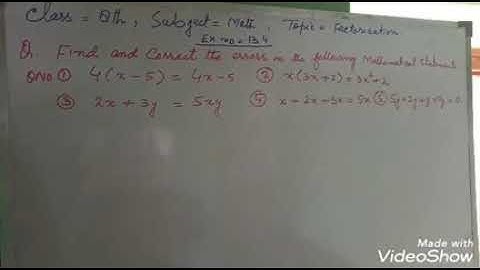 Class = 8th, Subject = Math, Topic = Factorisation
Ex no = 13.4
Q. Find and Correct the errors in the following Mathematical
QNO ① 4(x-5) = 4x-5 ② x(3x+2) = 3x²+2
③ 2x + 3y = 5xy x + 2x + 3x = 5x ⑤
Made with
VideoShow